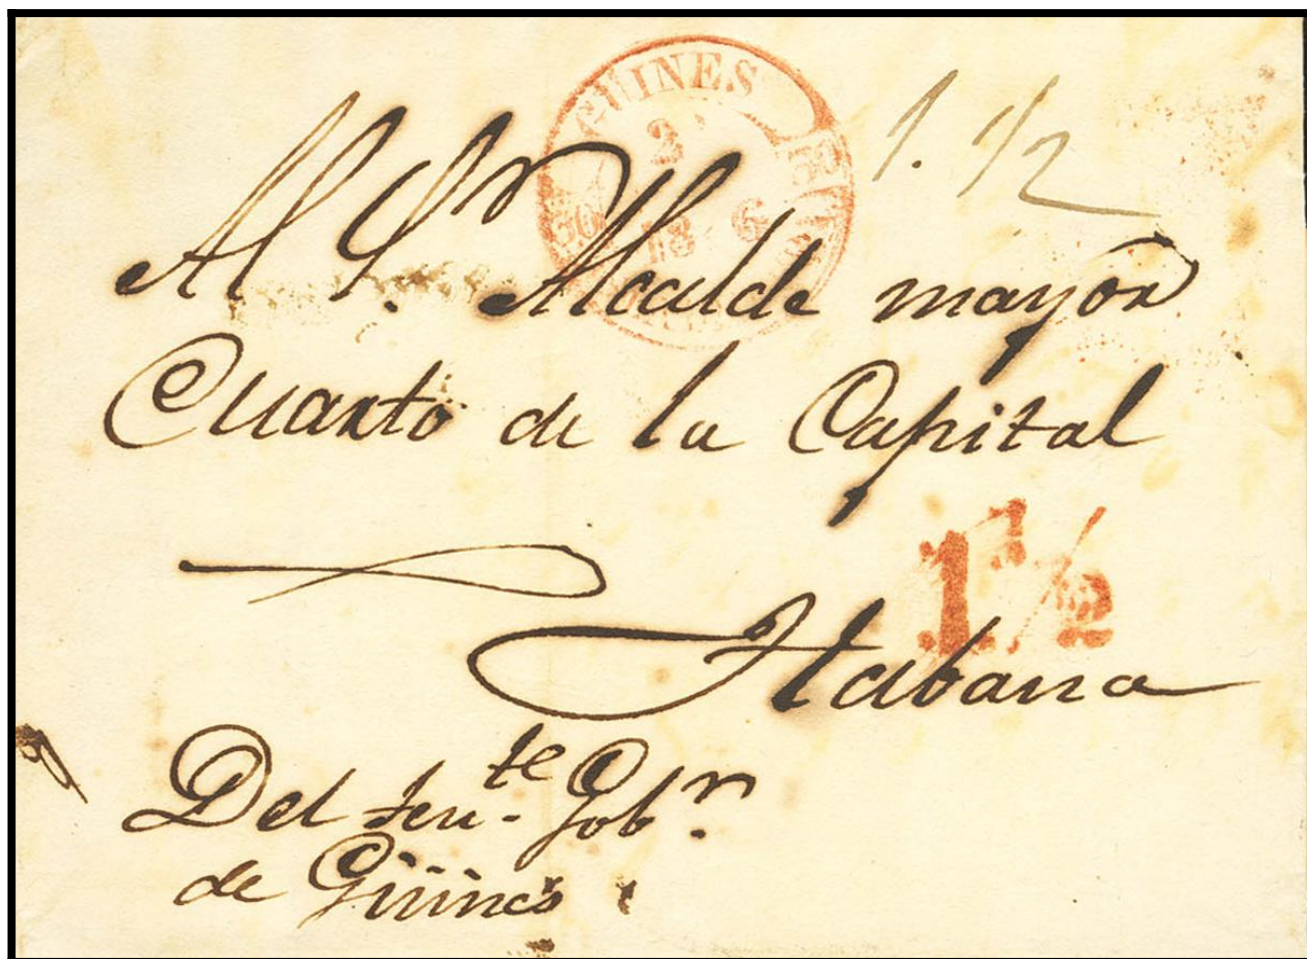 GUINES
2
18 6
1. 1/2
Al Sr. Alcalde mayor
Cuarto de la Capital
1 1/2
Habana
Del tente. Gobr.
de Güines